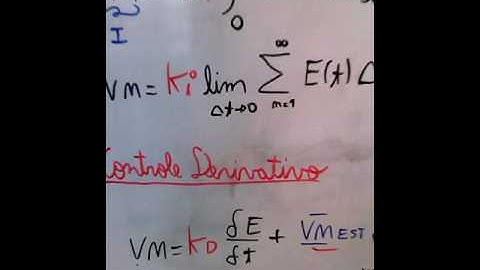 0
I
VM = Ki lim Δt→0 ∑ n=1 ∞ E(t) Δ
Controle Derivativo
VM = KD δE/δt + VM EST